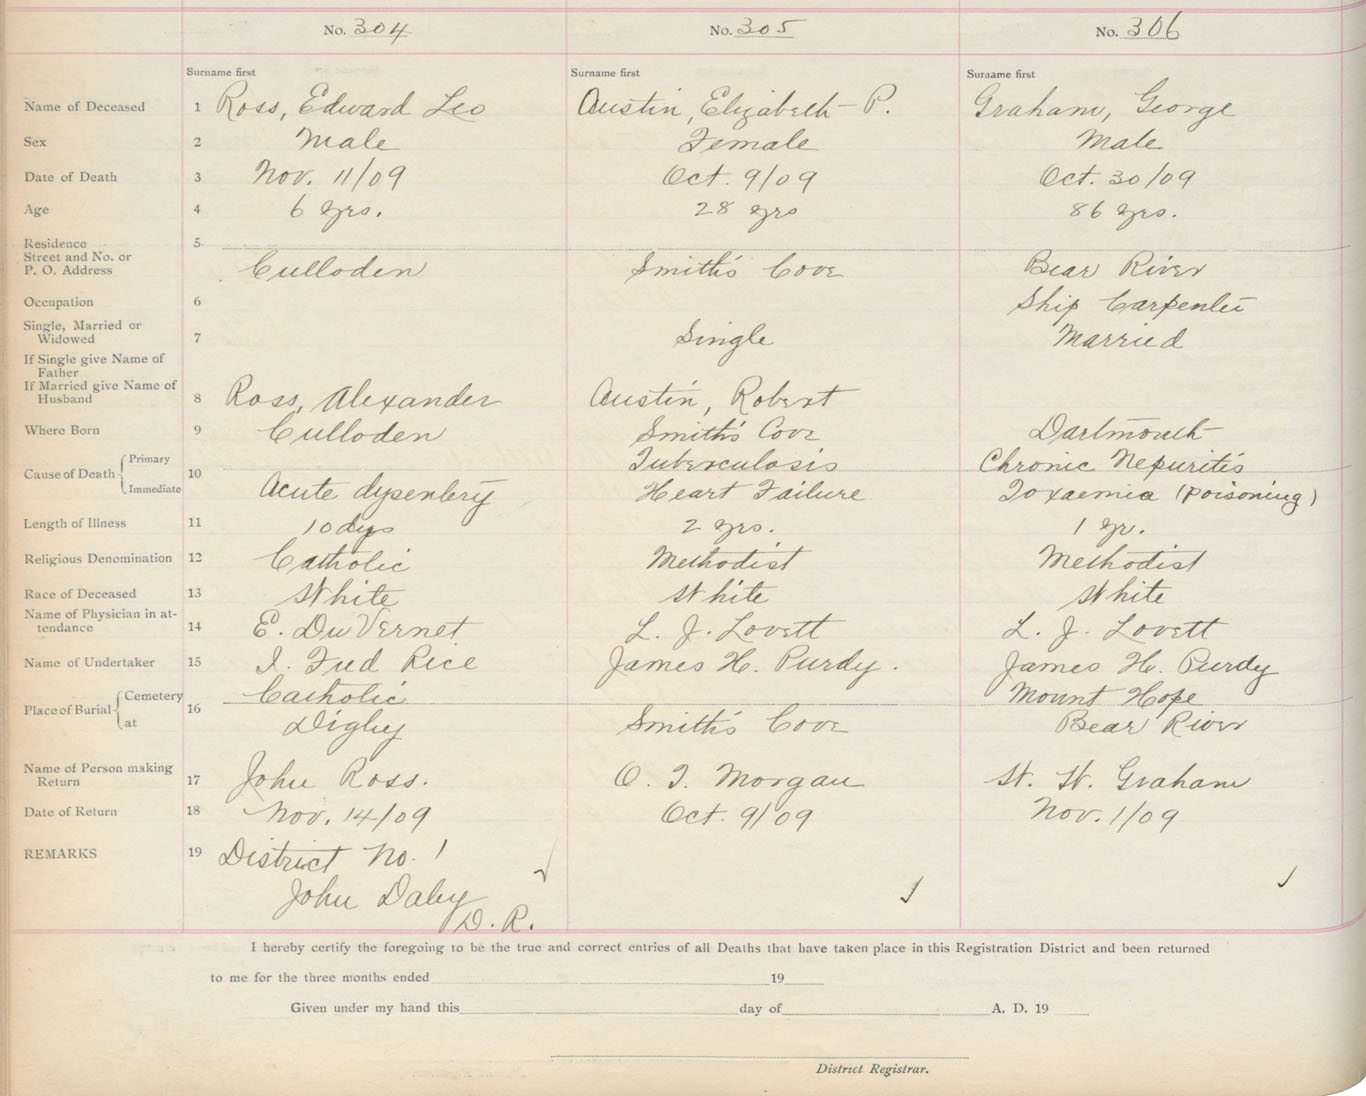 No. 304 No. 305 No. 306
Surname first Surname first Surname first
Name of Deceased 1 Ross, Edward Leo Austin, Elizabeth P. Graham, George
Sex 2 Male Female Male
Date of Death 3 Nov. 11/09 Oct. 9/09 Oct. 30/09
Age 4 6 yrs. 28 yrs 86 yrs.
Residence 5
Street and No. or
P. O. Address Culloden Smith's Cove Bear River
Occupation 6 Ship Carpenter
Single, Married or
Widowed 7 Single Married
If Single give Name of
Father
If Married give Name of
Husband 8 Ross, Alexander Austin, Robert
Where Born 9 Culloden Smith's Cove Dartmouth
Cause of Death Primary 10 Tuberculosis Chronic Nepuritis
Immediate Acute dysentery Heart Failure Toxaemia (poisoning)
Length of Illness 11 10 dys 2 yrs. 1 yr.
Religious Denomination 12 Catholic Methodist Methodist
Race of Deceased 13 White White White
Name of Physician in at-
tendance 14 E. DuVernet L. J. Lovett L. J. Lovett
Name of Undertaker 15 I. Fred Rice James H. Purdy. James H. Purdy
Place of Burial Cemetery 16 Catholic Mount Hope
at Digby Smith's Cove Bear River
Name of Person making
Return 17 John Ross. O. T. Morgan W. W. Graham
Date of Return 18 Nov. 14/09 Oct. 9/09 Nov. 1/09
REMARKS 19 District No. 1
John Daley
D. R.
I hereby certify the foregoing to be the true and correct entries of all Deaths that have taken place in this Registration District and been returned
to me for the three months ended 19
Given under my hand this day of A. D. 19
District Registrar.